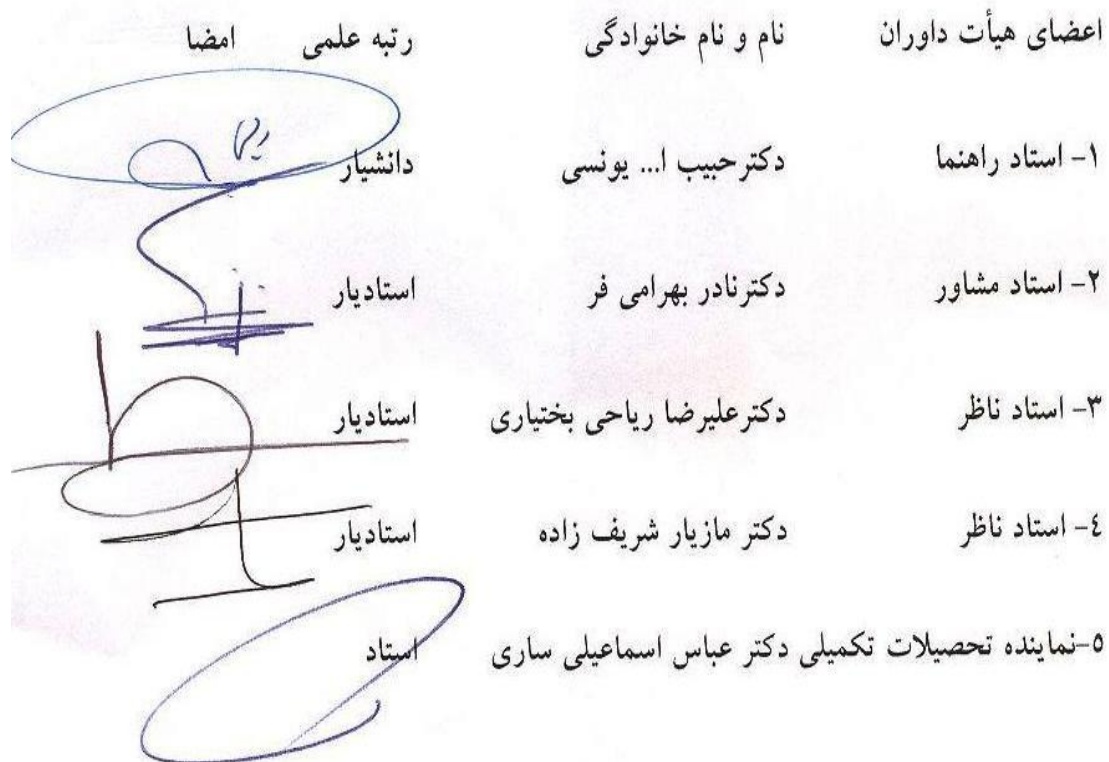 اعضای هیأت داوران نام و نام خانوادگی رتبه علمی امضا
۱- استاد راهنما دکترحبیب ا... یونسی دانشیار
۲- استاد مشاور دکترنادر بهرامی فر استادیار
۳- استاد ناظر دکترعلیرضا ریاحی بختیاری استادیار
٤- استاد ناظر دکتر مازیار شریف زاده استادیار
٥-نماینده تحصیلات تکمیلی دکتر عباس اسماعیلی ساری استاد